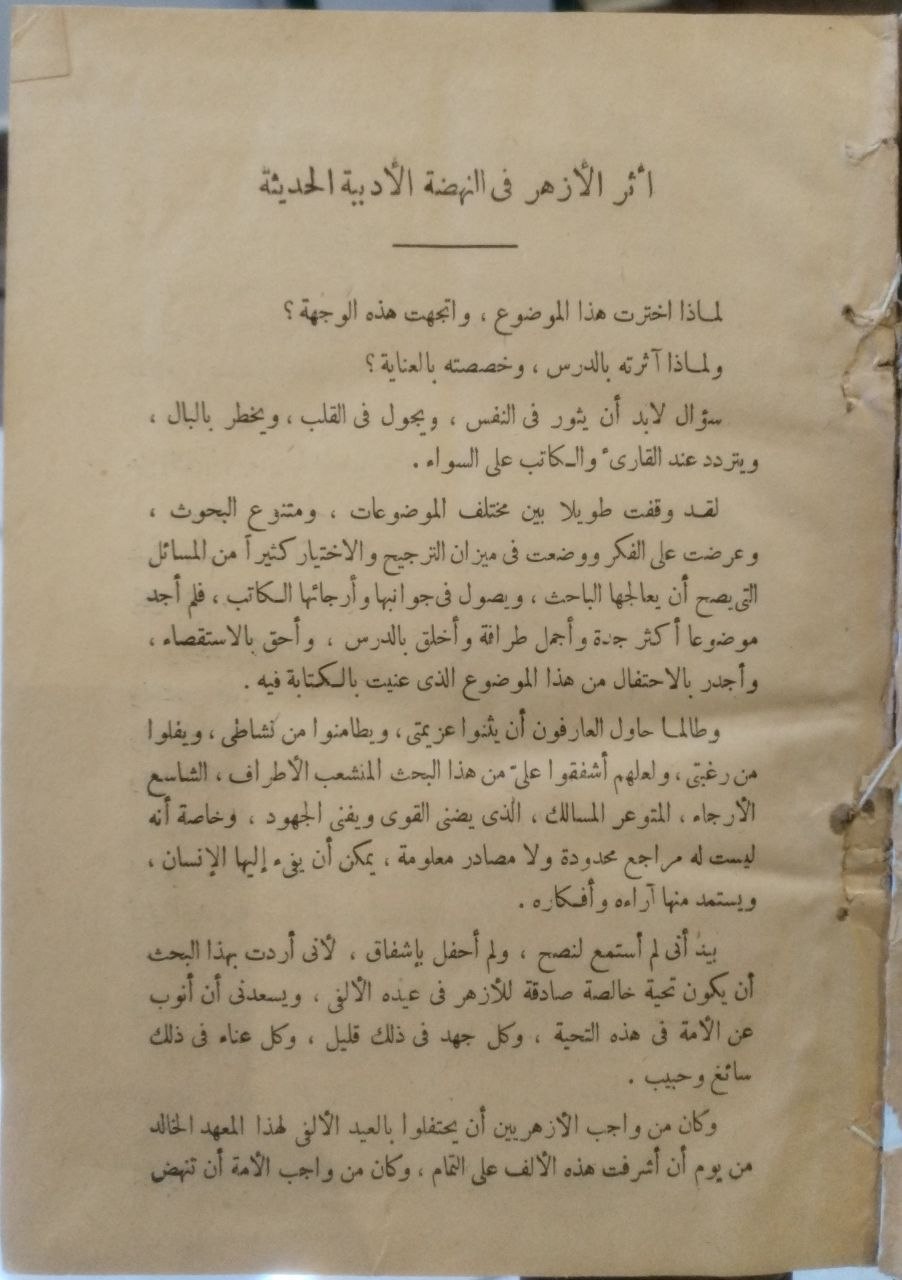 أثر الأزهر فى النهضة الأدبية الحديثة
لماذا اخترت هذا الموضوع ، واتجهت هذه الوجهة ؟
ولماذا آثرته بالدرس ، وخصصته بالعناية ؟
سؤال لابد أن يثور فى النفس ، ويجول فى القلب ، ويخطر بالبال ،
ويتردد عند القارىء والكاتب على السواء .
لقد وقفت طويلا بين مختلف الموضوعات ، ومتنوع البحوث ،
وعرضت على الفكر ووضعت فى ميزان الترجيح والاختيار كثيراً من المسائل
التى يصح أن يعالجها الباحث ، ويصول فى جوانبها وأرجائها الكاتب ، فلم أجد
موضوعا أكثر جدة وأجمل طرافة وأخلق بالدرس ، وأحق بالاستقصاء ،
وأجدر بالاحتفال من هذا الموضوع الذى عنيت بالكتابة فيه .
وطالما حاول العارفون أن يثنوا عزيمتى ، ويطامنوا من نشاطى ، ويفلوا
من رغبتى ، ولعلهم أشفقوا علىّ من هذا البحث المنشعب الأطراف ، الشاسع
الأرجاء ، المتوعر المسالك ، الذى يضنى القوى ويفنى الجهود ، وخاصة أنه
ليست له مراجع محدودة ولا مصادر معلومة ، يمكن أن يفىء إليها الإنسان ،
ويستمد منها آراءه وأفكاره .
بيد أنى لم أستمع لنصح ، ولم أحفل بإشفاق ، لأنى أردت بهذا البحث
أن يكون تحية خالصة صادقة للأزهر فى عيده الألفى ، ويسعدنى أن أنوب
عن الأمة فى هذه التحية ، وكل جهد فى ذلك قليل ، وكل عناء فى ذلك
سائغ وحبيب .
وكان من واجب الأزهريين أن يحتفلوا بالعيد الألفى لهذا المعهد الخالد
من يوم أن أشرفت هذه الألف على التمام ، وكان من واجب الأمة أن تنهض